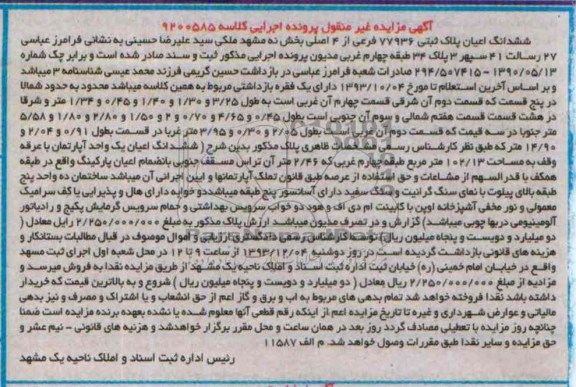 آگهی مزایده غیر منقول پرونده اجرایی کلاسه ۹۲۰۰۵۸۵
ششدانگ اعیان پلاک ثبتی ۷۷۹۳۶ فرعی از ۴ اصلی بخش نه مشهد ملکی سید علیرضا حسینی به نشانی فرامرز عباسی
۲۷ رسالت ۴۱ سپهر ۳ پلاک ۳۴ طبقه چهارم غربی مدیون پرونده اجرایی مذکور ثبت و سند صادر شده است و برابر چک شماره
۲۹۴/۵۰۷۴۱۵ – ۱۳۹۰/۰۵/۱۳ صادرات شعبه فرامرز عباسی در بازداشت حسین کریمی فرزند محمد عیسی شناسنامه ۳ میباشد
و بر اساس آخرین استعلام تا مورخ ۱۳۹۳/۱۰/۰۴ دارای یک فقره بازداشتی مربوط به همین کلاسه میباشد محدود به حدود شمالا
در پنج قسمت که قسمت دوم آن شرقی قسمت چهارم آن غربی است به طول ۳/۲۵ و ۱/۳۰ و ۱/۴۰ و ۰/۴۵ و ۱/۳۴ متر و شرقا
در هشت قسمت قسمت هفتم شمالی و سوم آن جنوبی است بطول ۰/۴۵ و ۴/۶۵ و ۰/۷۰ و ۲ و ۱/۵۰ و ۲/۸۰ و ۱/۸۰ و ۵/۵۸
متر جنوبا در سه قیمت که قسمت دوم آن غربی است بطول ۲/۰۵ و ۰/۳۰ و ۳/۹۵ متر غربا در قسمت بطول ۰/۹۱ و ۲/۰۴ و
۱۴/۹۰ متر که طبق نظر کارشناس رسمی مشخصات ظاهری پلاک مذکور بدین شرح ( ششدانگ اعیان یک واحد آپارتمان با عرصه
وقف به مساحت ۱۰۲/۱۳ متر مربع طبقه چهارم غربی که ۲/۴۶ متر آن تراس مسقف جنوبی بانضمام اعیان پارکینگ واقع در طبقه
همکف با قدرالسهم از مشاعات و حق استفاده از عرصه طبق قانون تملک آپارتمانها و آیین اجرائی آن میباشد ساختمان ده واحد پنج
طبقه بالای پیلوت با نمای سنگ گرانیت و سنگ سفید دارای آسانسور پنج طبقه میباشد دو خوابه دارای هال و پذیرایی با کف سرامیک
معمولی و نور مخفی آشپزخانه اوپن با کابینت ام دی اف و هود دو خواب سرویس بهداشتی و حمام سرویس گرمایش پکیج و رادیاتور
آلومینیومی دربها چوبی میباشد) گزارش و در تصرف مدیون میباشد ارزش پلاک مذکور به مبلغ ۲/۲۵۰/۰۰۰/۰۰۰ رایل معادل (
دو میلیارد و دویست و پنجاه میلیون ریال) توسط کارشناس رسمی دادگستری ارزیابی و اموال موصوف در قبال مطالبات بستانکار و
هزینه های قانونی بازداشت گردیده است در روز دوشنبه ۱۳۹۳/۱۲/۰۴ از ساعت ۹ تا ۱۲ در محل شعبه اول اجرای ثبت مسهد
واقع در خیابان امام خمینی (ره) خیابان ثبت اداره ثبت اسناد و املاک ناحیه یک مشهد از طریق مزایده نقدا به فروش میرسد و
مزایده از مبلغ ۲/۲۵۰/۰۰۰/۰۰۰ ریال معادل ( دو میلیارد و دویست و پنجاه میلیون ریال ) شروع و به بالاترین قیمت که خریدار
داشته باشد نقدا فروخته خواهد شد تمام بدهی های مربوط به اب و برق و گاز اعم از حق انشعاب و یا اشتراک و مصرف و نیز بدهی
مالیاتی و عوارض شهرداری و غیره تا تاریخ مزایده اعم از اینکه رقم قطعی آنها معلوم شده یا نشده بعهده برنده مزایده است ضمنا
چنانچه روز مزایده با تعطیلی مصادف گردد روز بعد در همان ساعت و محل مقرر برگزار خواهد شد و هزینه های قانونی – نیم عشر و
حق مزایده و سایر نقدا طبق مقررات وصول خواهد شد. م الف ۱۱۵۸۷
رئیس اداره ثبت اسناد و املاک ناحیه یک مشهد